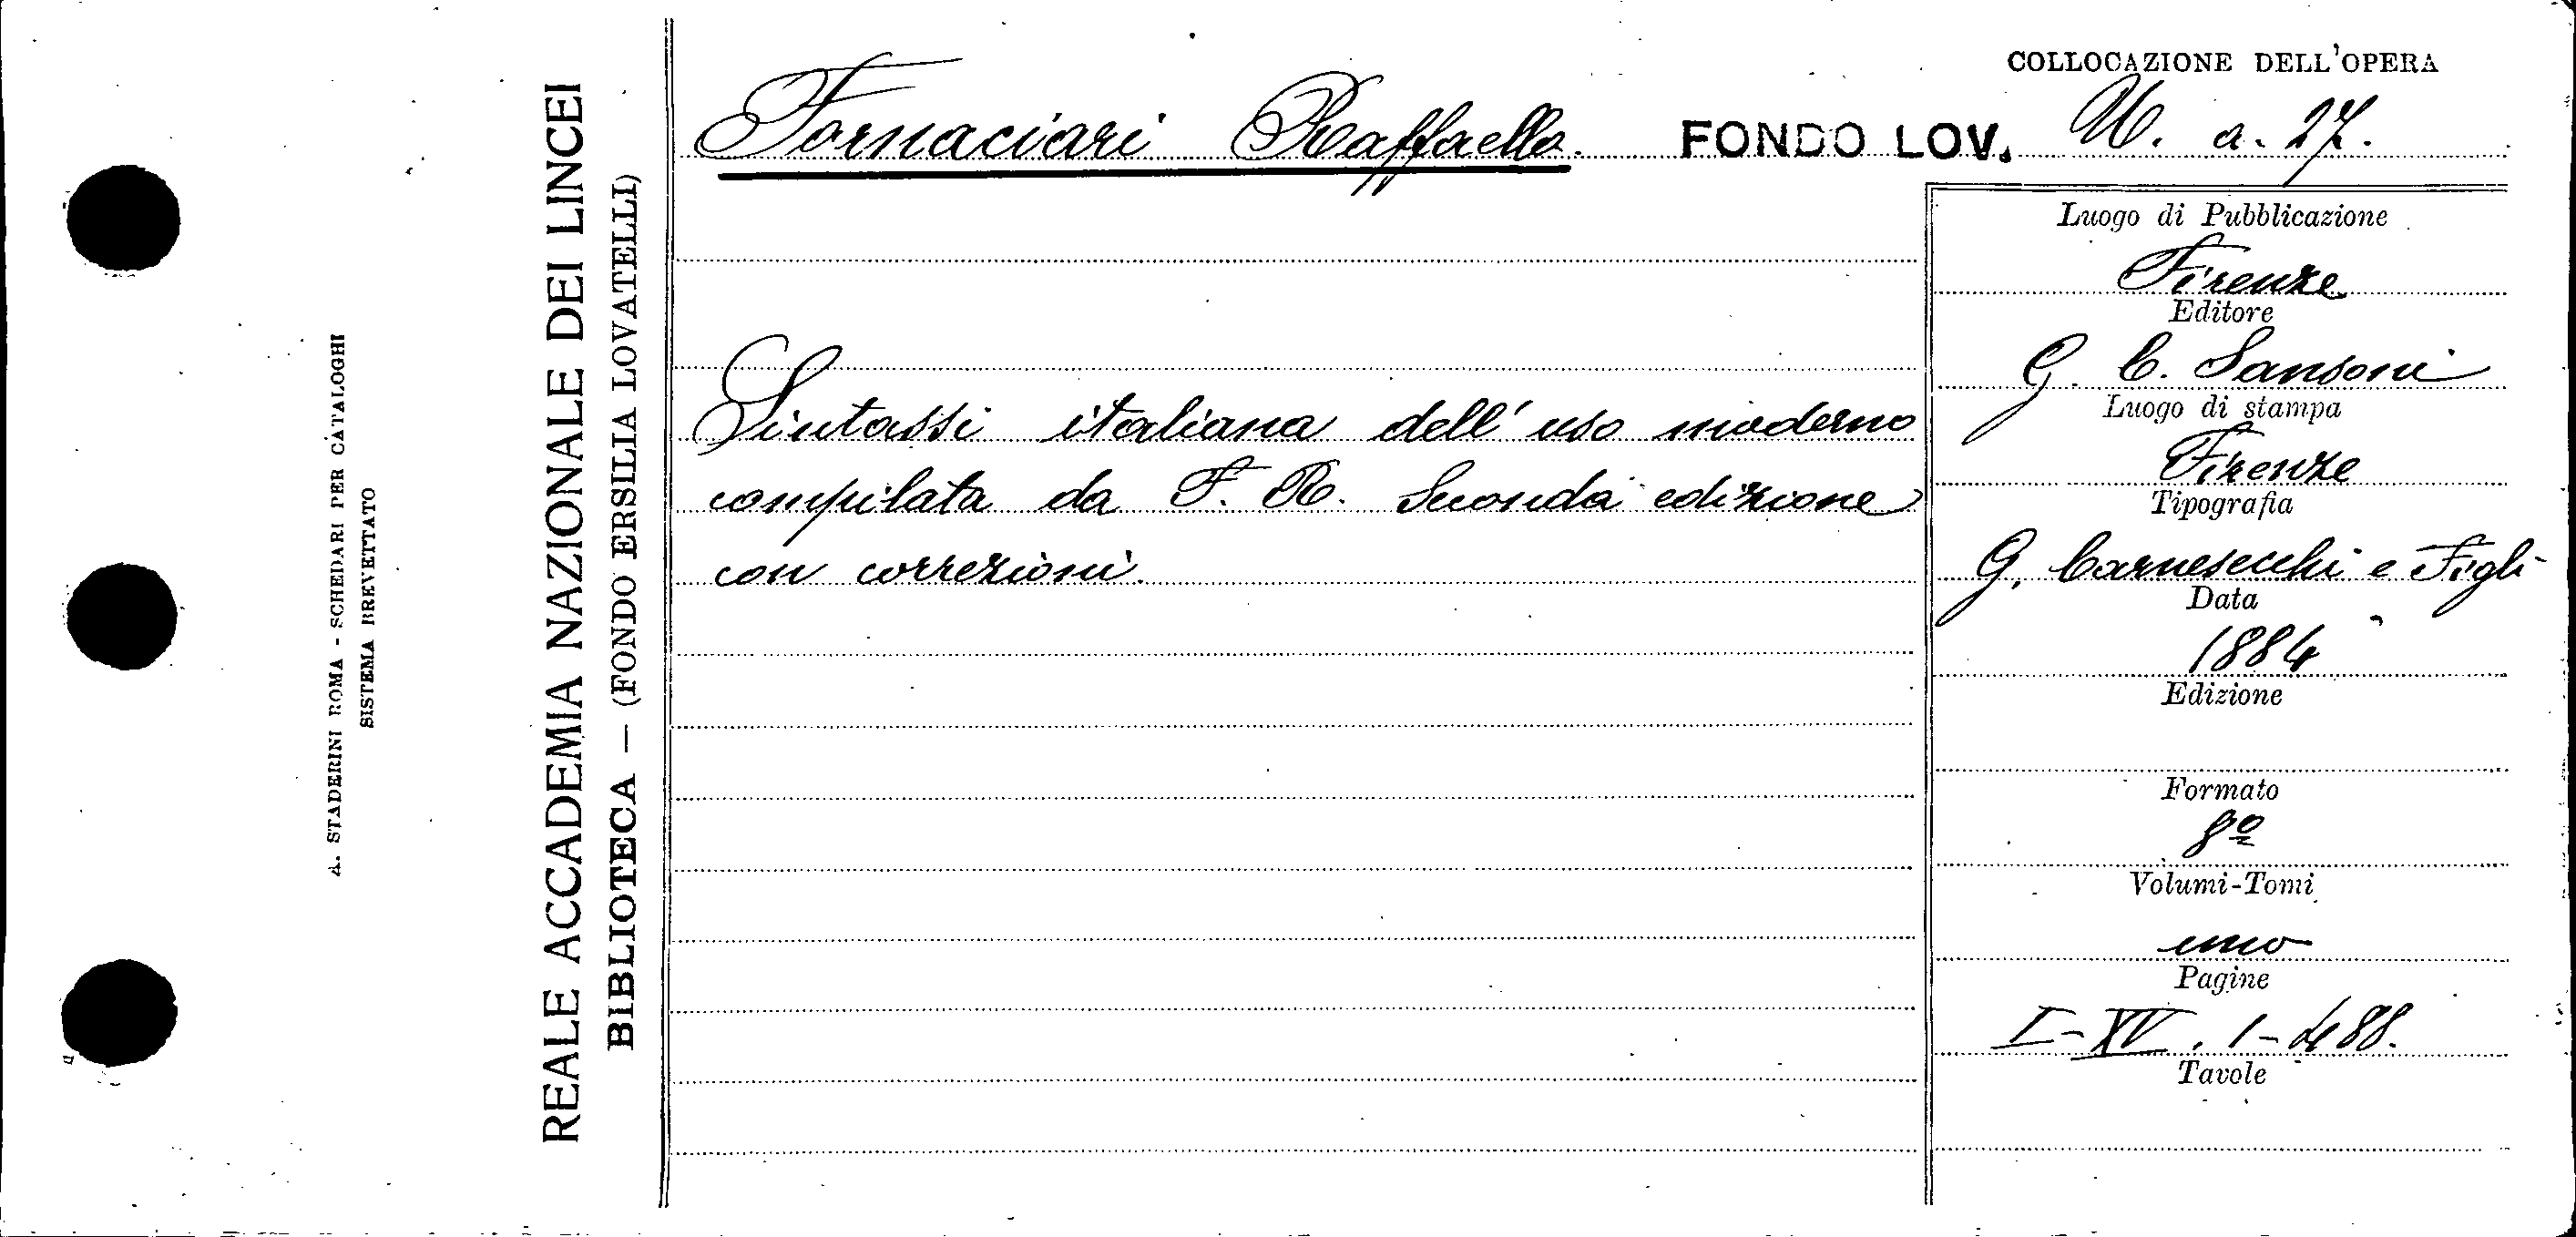 A. STADERINI ROMA - SCHEDARI PER CATALOGHI
SISTEMA BREVETTATO
REALE ACCADEMIA NAZIONALE DEI LINCEI
BIBLIOTECA — (FONDO ERSILIA LOVATELLI)
Fornaciari Raffaello.
FONDO LOV.
COLLOCAZIONE DELL'OPERA
U. a. 27.
Sintassi italiana dell'uso moderno
compilata da F. R. Seconda edizione
con correzioni.
Luogo di Pubblicazione
Firenze
Editore
G. C. Sansoni
Luogo di stampa
Firenze
Tipografia
G. Carnesecchi e Figli
Data
1884
Edizione
Formato
8º
Volumi-Tomi
uno
Pagine
I-XV. 1-488.
Tavole